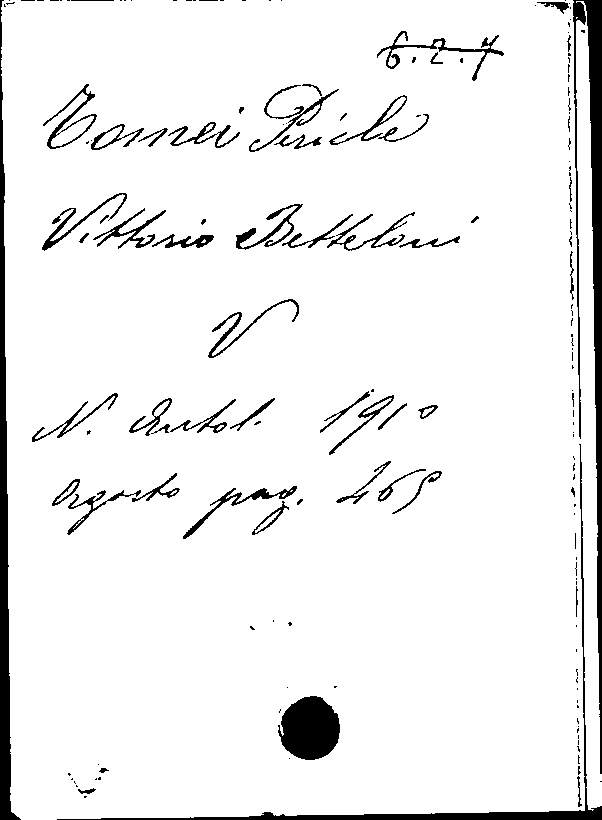 6.2.7
Tomei Pericle
Vittorio Betteloni
V
N. Antol. 1910
Agosto pag. 465